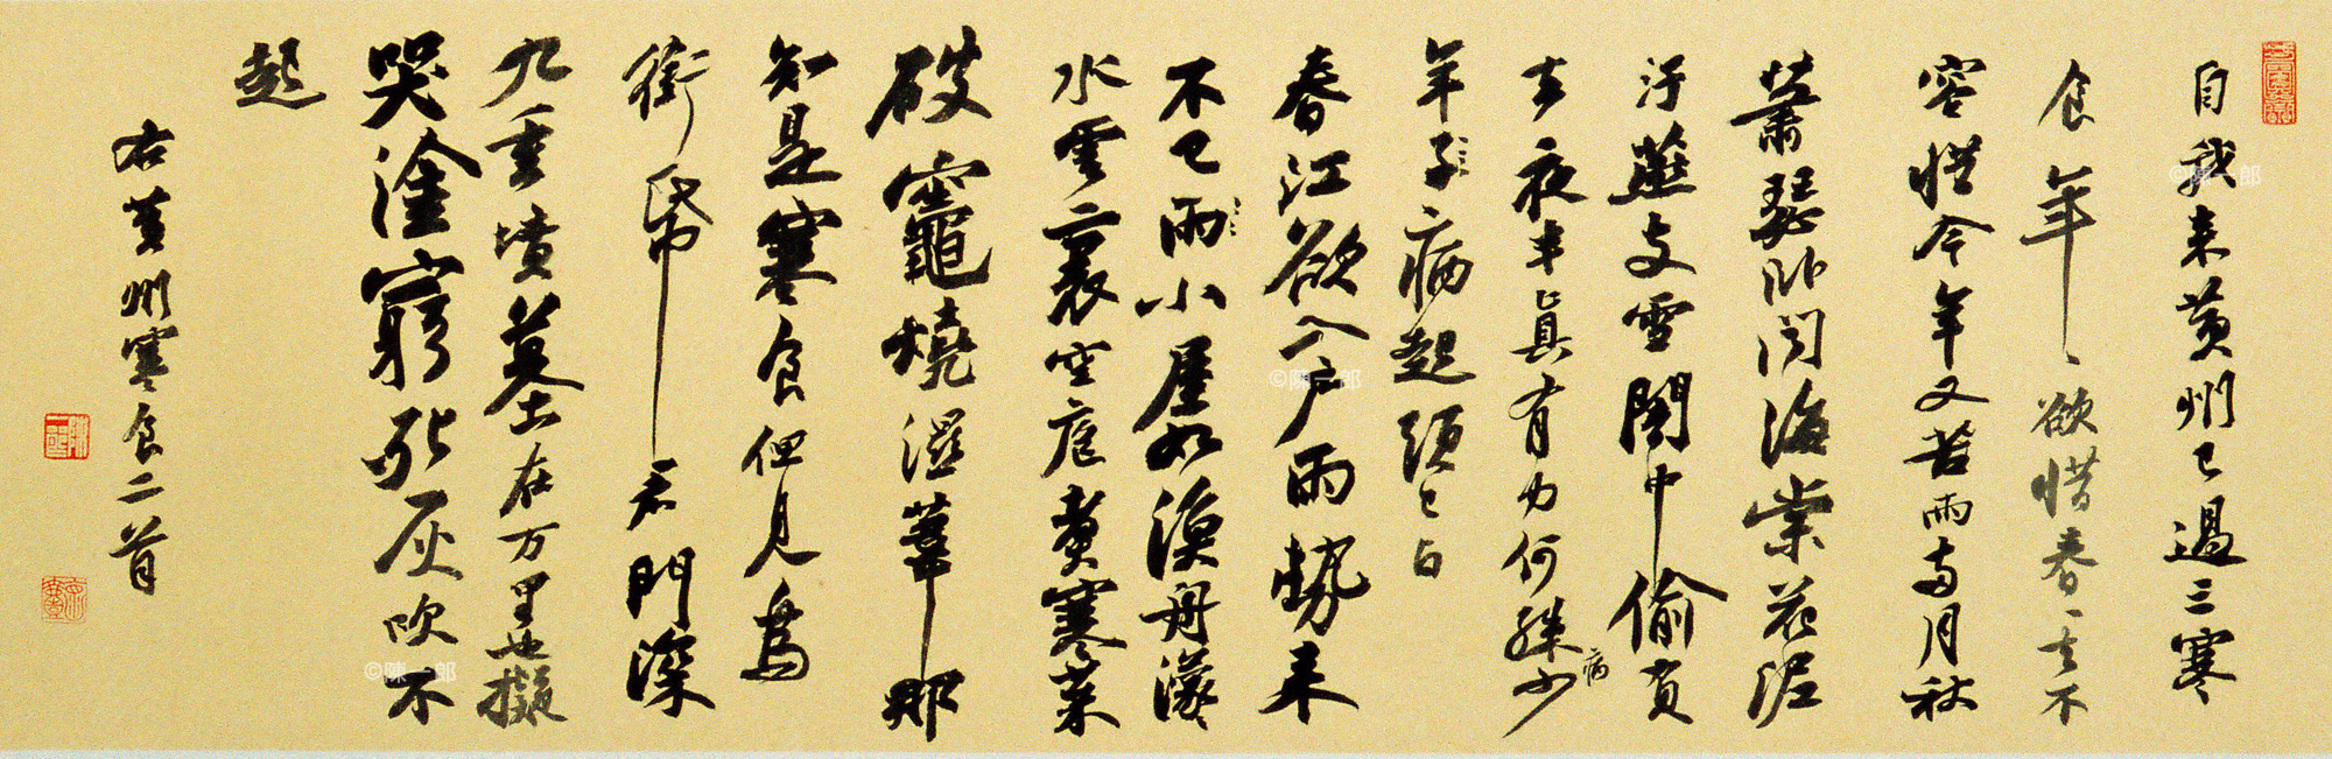 自我来黄州已過三寒
食年〻欲惜春〻去不
容惜今年又苦雨兩月秋
蕭瑟卧聞海棠花泥
汙燕支雪闇中偷負
去夜半真有力何殊少
病
年子病起頭已白
春江欲入戶雨勢来
不已雨小屋如漁舟濛
水雲裏空庖煮寒菜
破竈燒濕葦那
知是寒食但見烏
銜帋君門深
九重墳墓在万里也擬
哭塗窮死灰吹不
起
右黄州寒食二首
©陳一郎
©陳一郎
©陳一郎